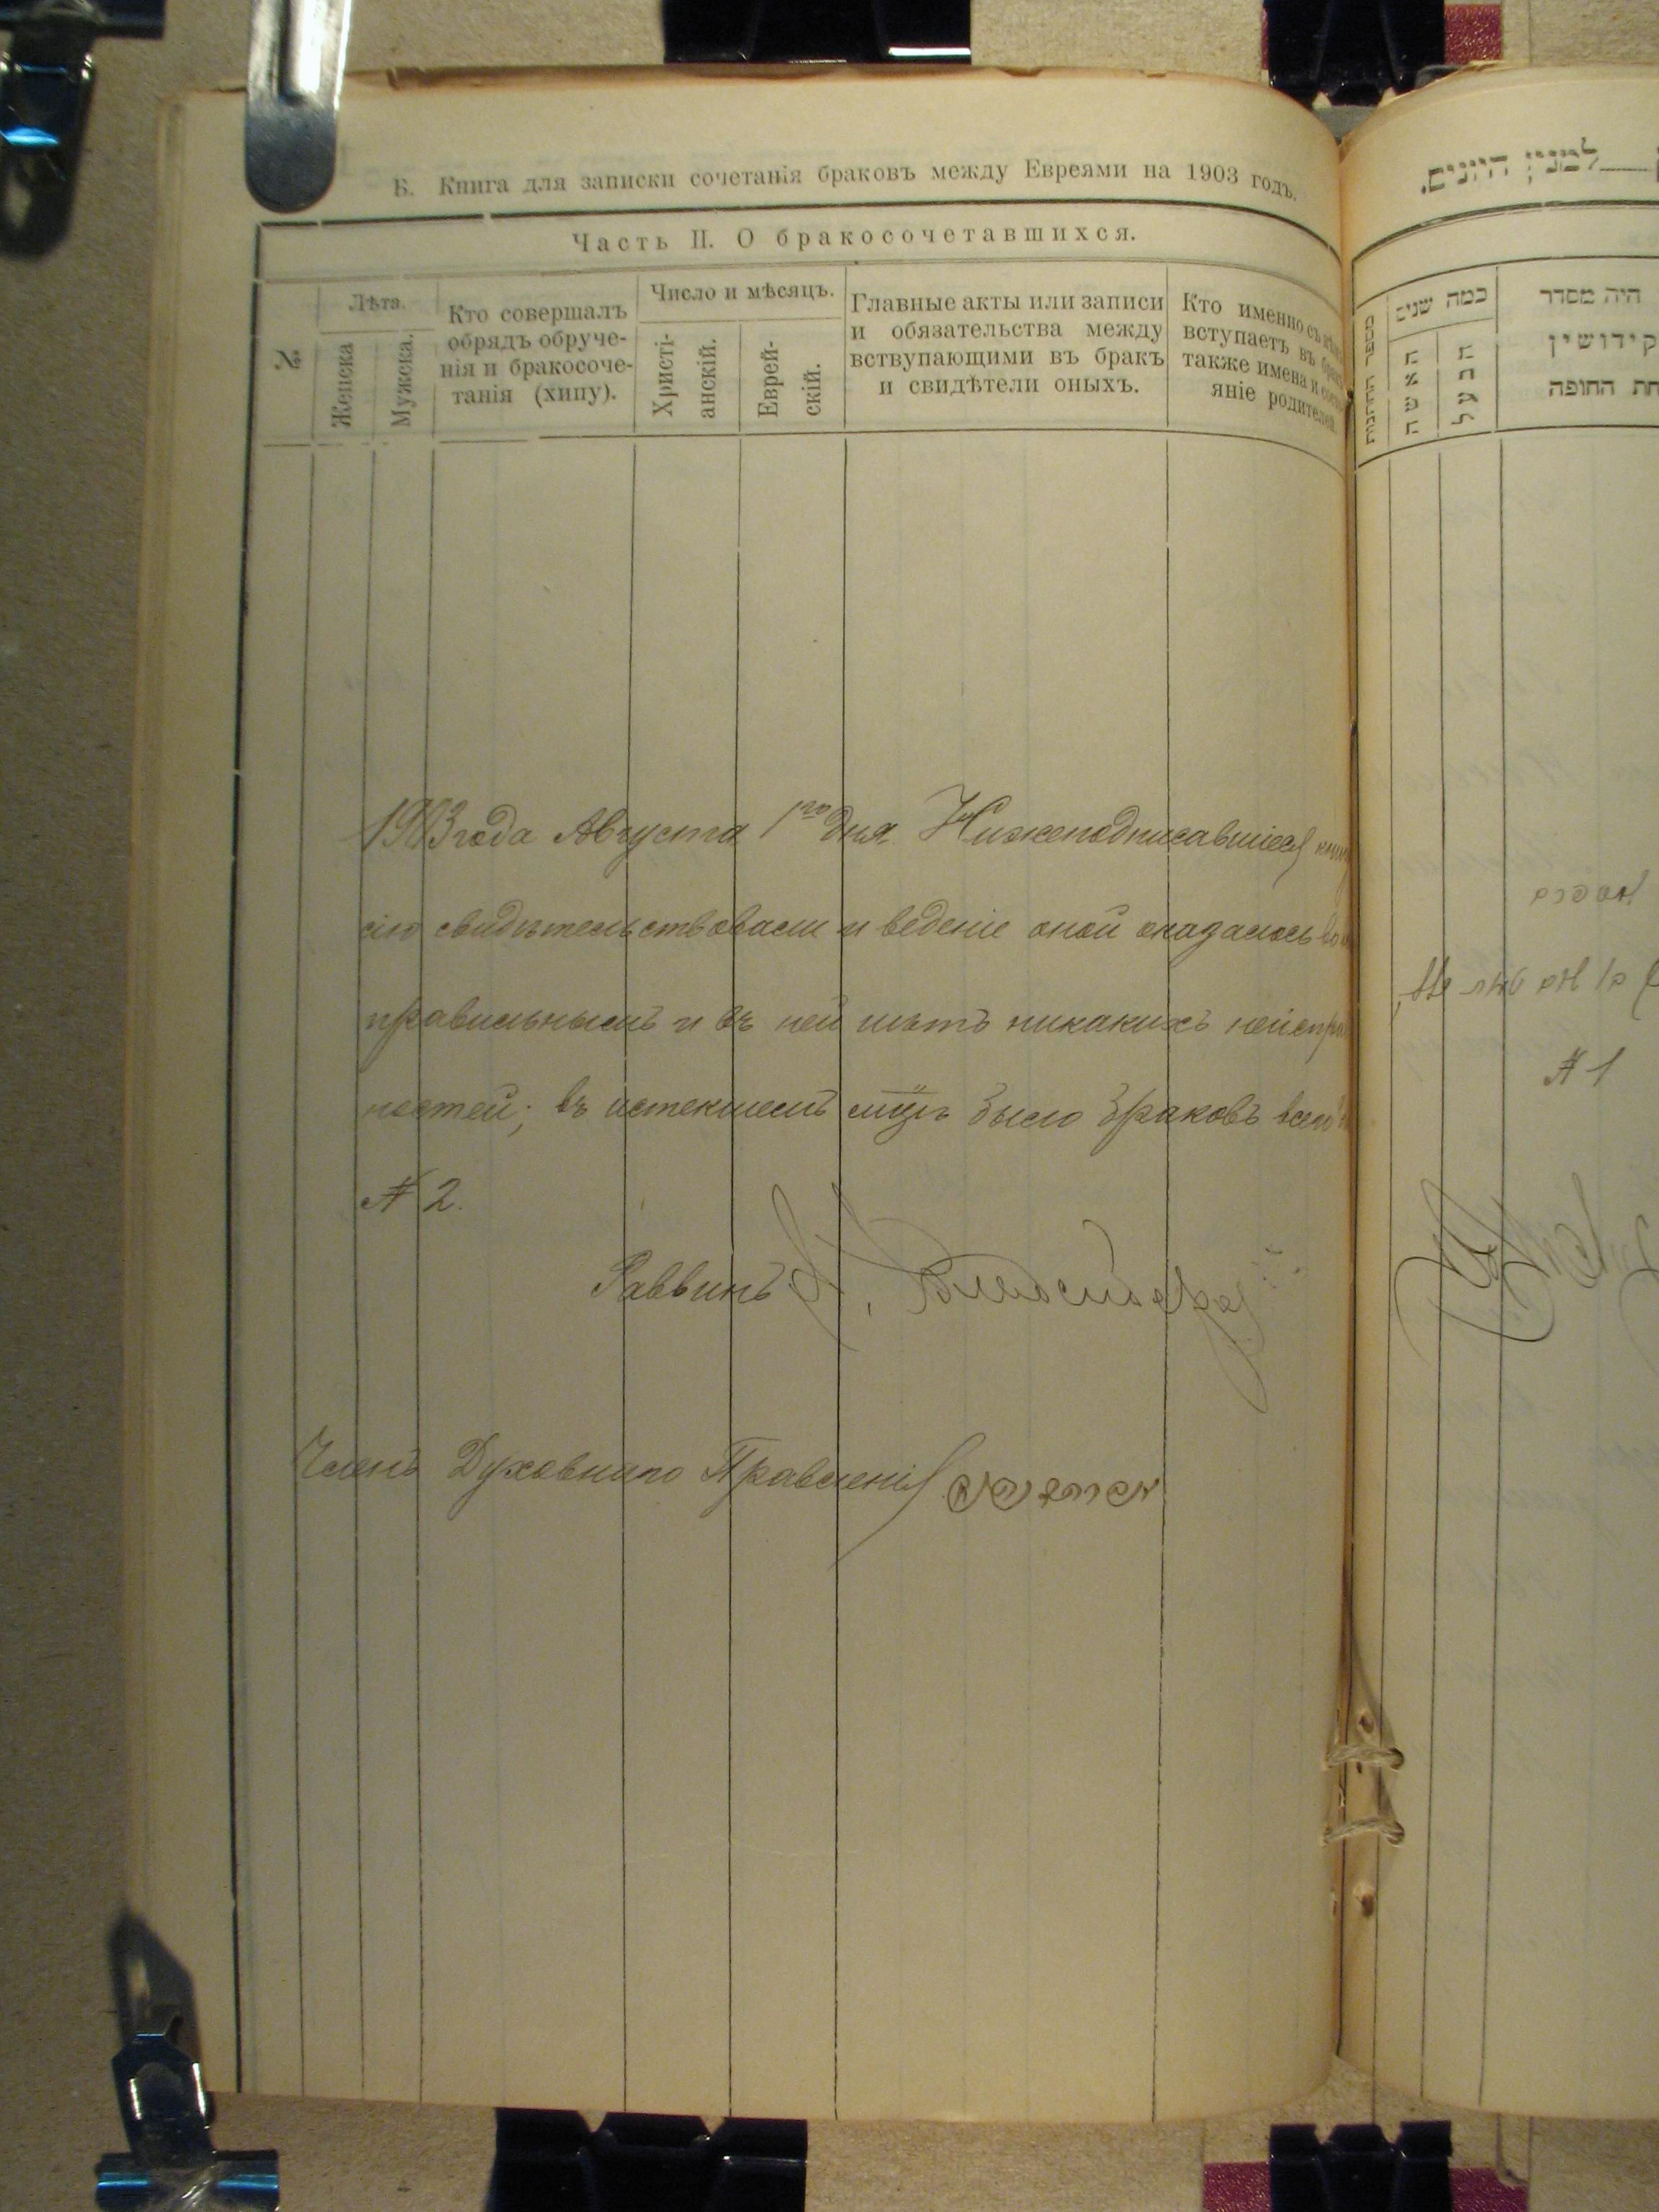 Б. Книга для записки сочетанія браковъ между Евреями на 1903 годъ.
Часть II. О бракосочетавшихся.
№
Лѣта.
Женска
Мужска.
Кто совершалъ
обрядъ обруче-
нія и бракосоче-
танія (хипу).
Число и мѣсяцъ.
Христі-
анскій.
Еврей-
скій.
Главные акты или записи
и обязательства между
вствупающими въ бракъ
и свидѣтели оныхъ.
Кто именно съ кѣмъ
вступаетъ въ бракъ
также имена и состо-
яніе родителей.
1903 года Августа 1го дня Нижеподписавшіеся
сію свидѣтельствовали и веденіе оной оказалось
правильнымъ и въ ней нѣтъ никакихъ неиспра
ностей; въ истекшемъ мцѣ было браковъ всего
№ 2.
Раввинъ
Членъ Духовнаго Правленія
למנין היונים.
כמה שנים
האשה
הבעל
היה מסדר
קידושין
תחת החופה
№ 1